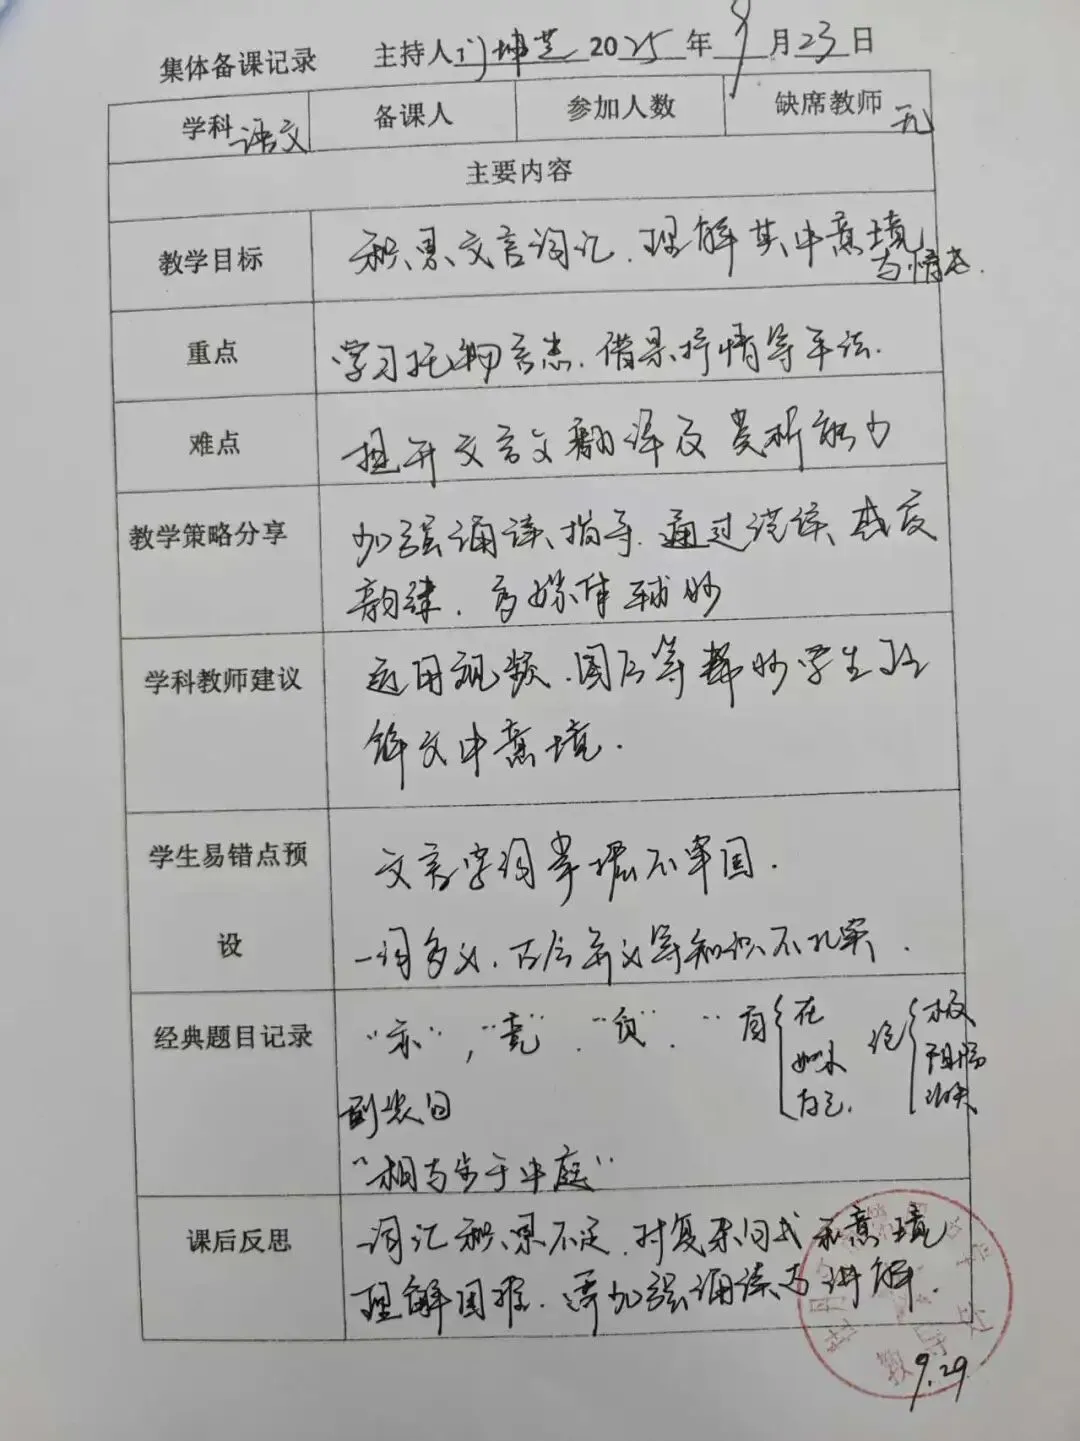 集体备课记录 主持人 2025年9月23日
学科 语文 备课人 参加人数 缺席教师 无
主要内容
教学目标 积累文言词汇.理解其中意境
与情志.
重点 学习托物言志.借景抒情等手法.
难点 提升文言文翻译及赏析能力
教学策略分享 加强诵读、指导.通过范读、感受
韵律.多媒体辅助
学科教师建议 运用视频.图片等帮助学生理
解文中意境.
学生易错点预 文言字词掌握不牢固.
设 一词多义.古今异义等知识不扎实.
经典题目记录 "亦","竞"."负"."自 在
如水
自己.
绝 极
阻隔
消失
倒装句
"相与步于中庭"
课后反思 词汇积累不足.对复杂句式和意境
理解困难.需加强诵读与讲解.
9.29